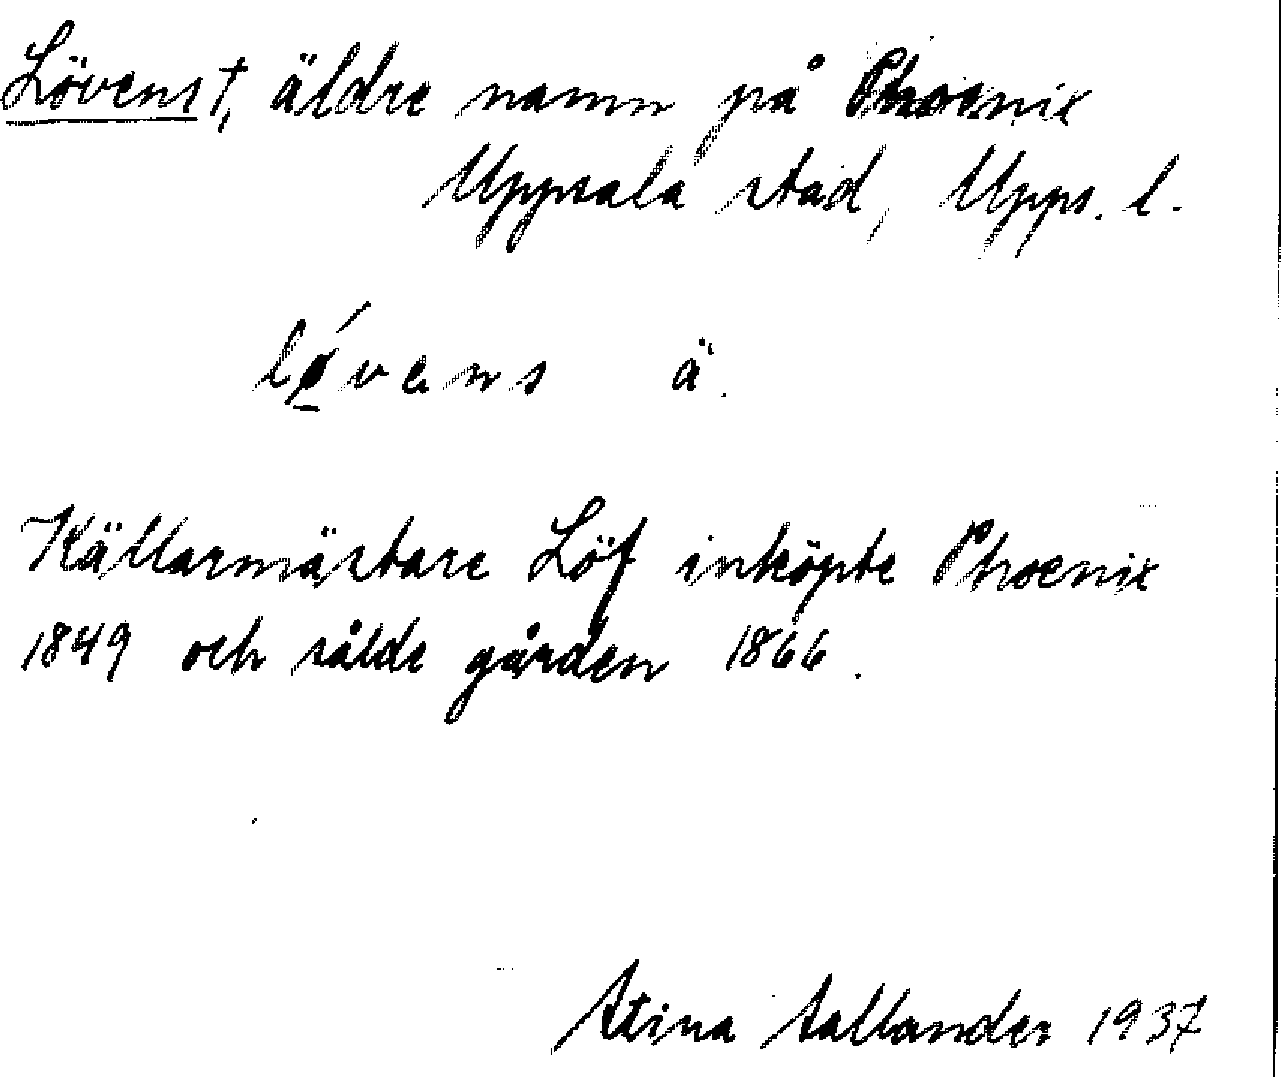 Lövens †, äldre namn på Phoenix
Uppsala stad, Upps. l.
lǿvens ä.
Källarmästare Löf inköpte Phoenix
1849 och sålde gården 1866.
Stina Sallander 1937